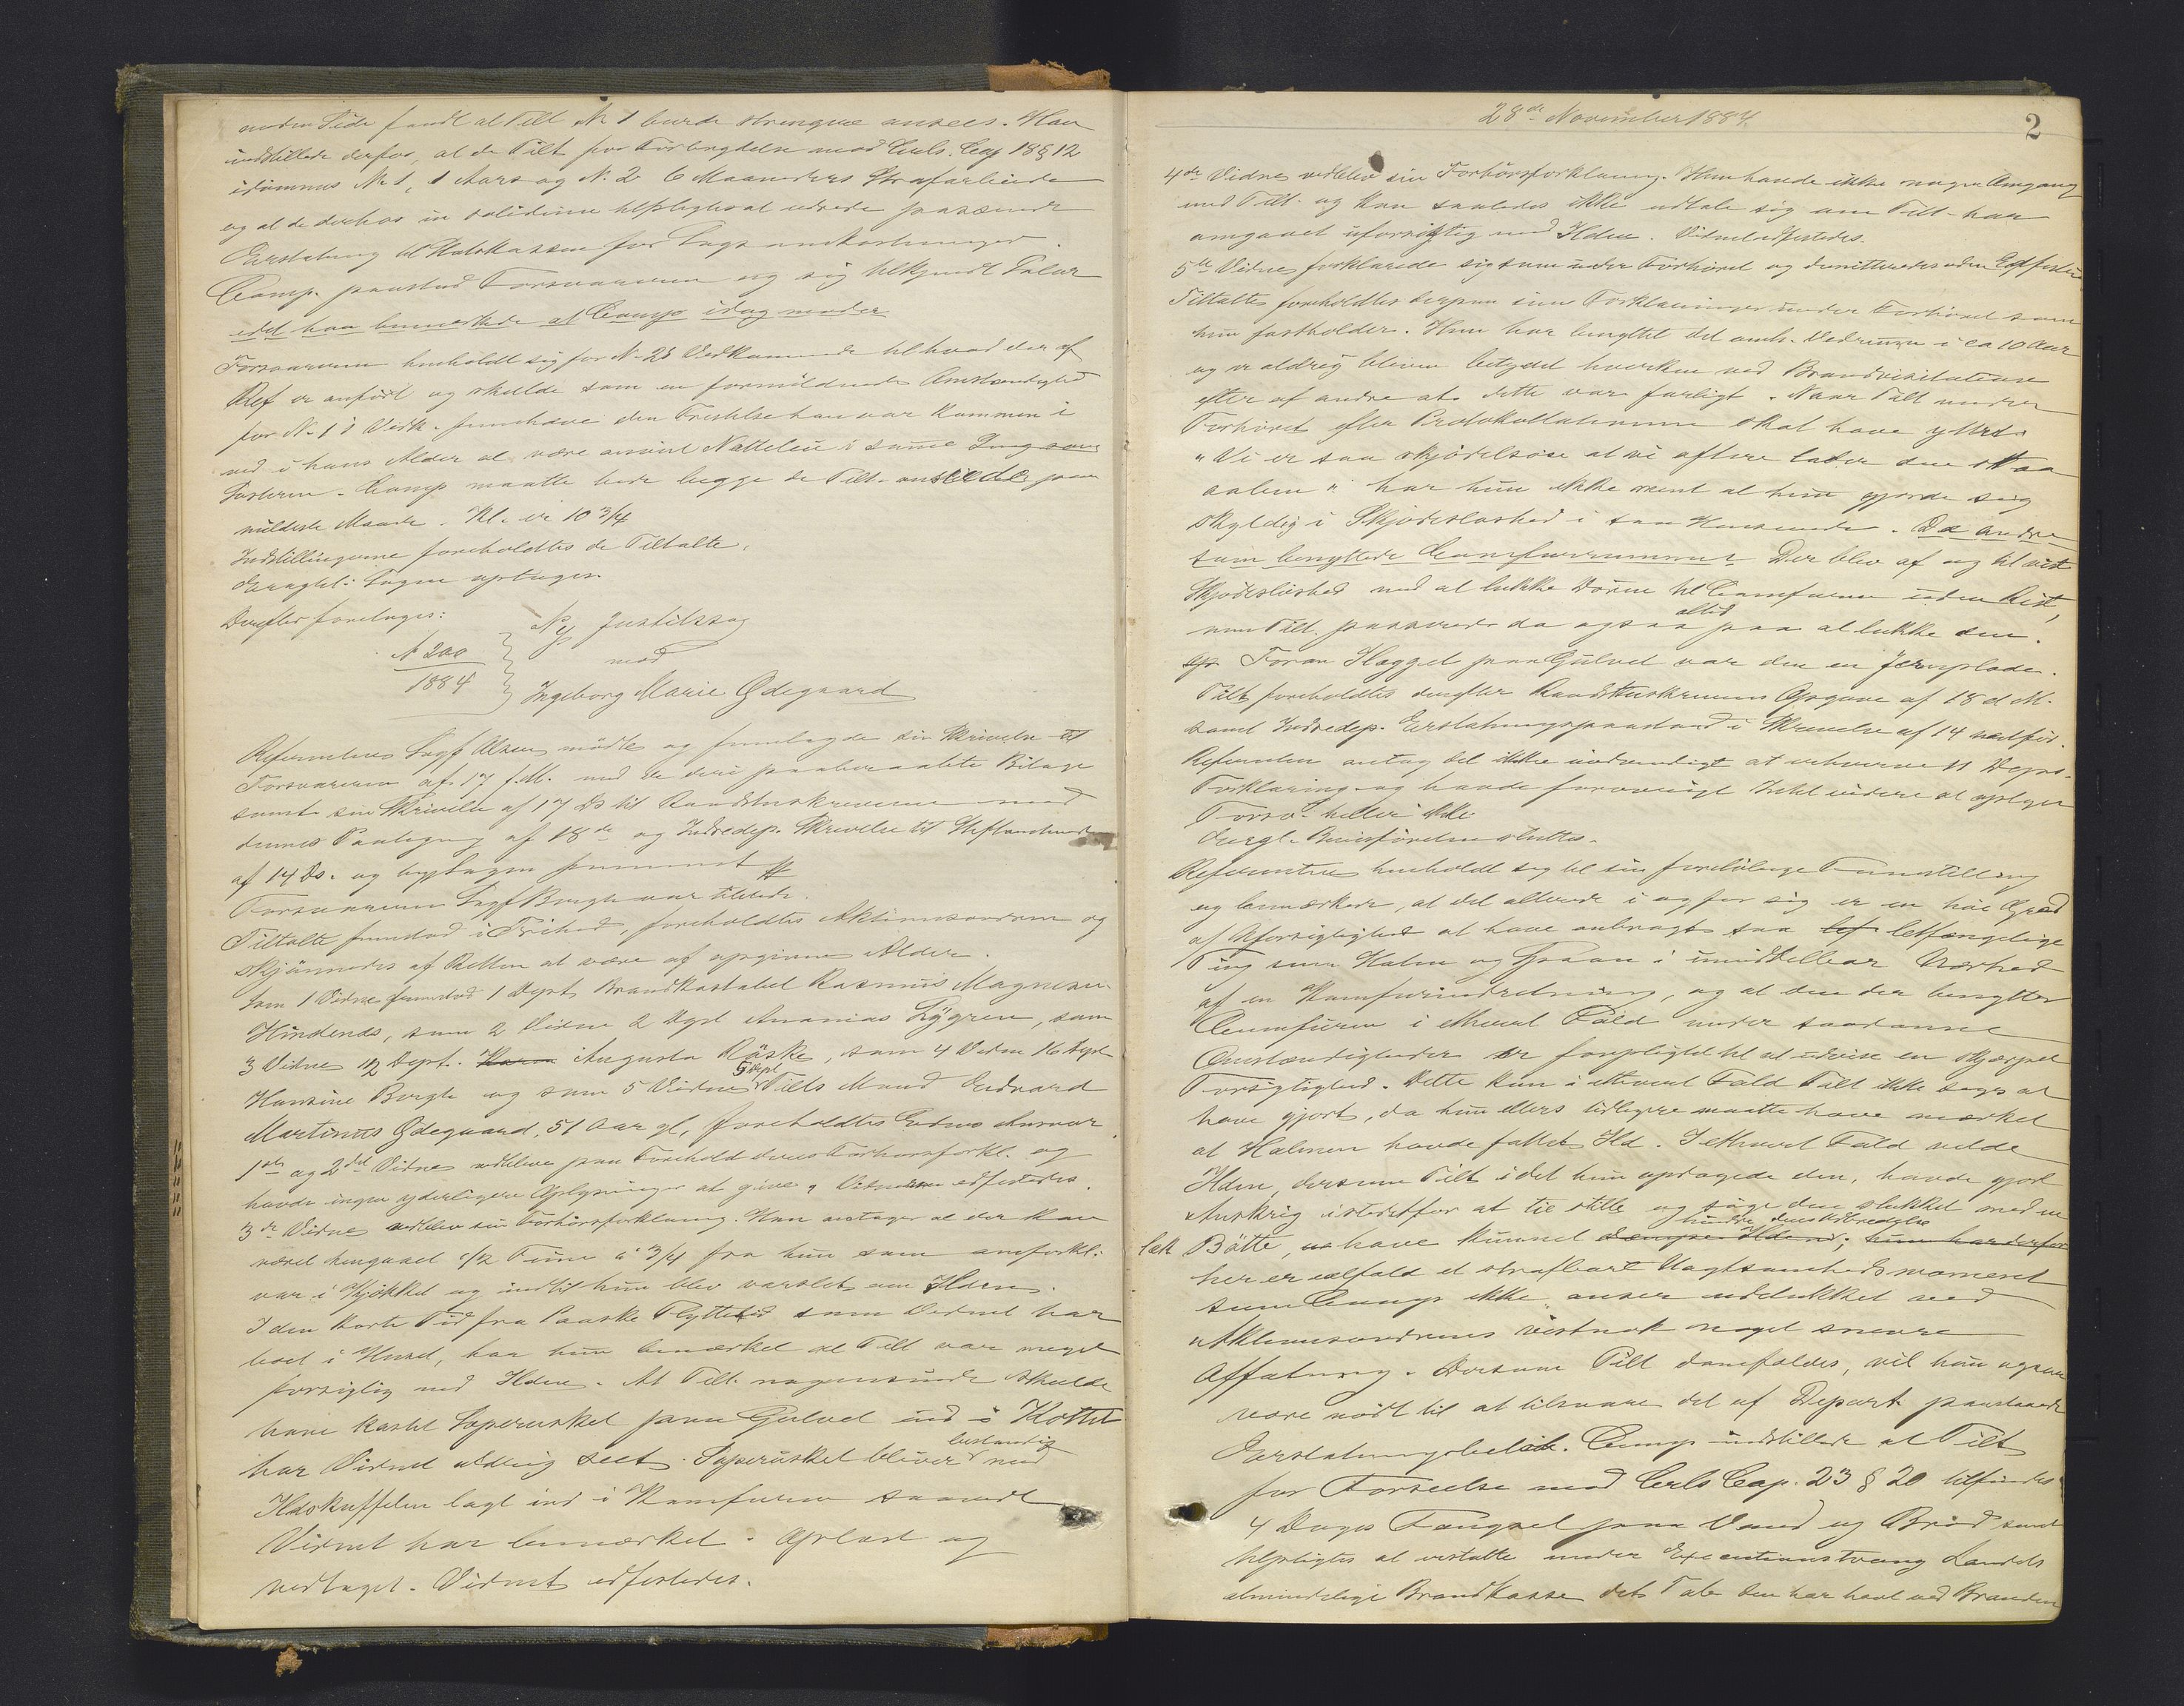 anden Side fandt at Tilt № 1 burde strengere ansees. Han
indstillede derfor, at de Tilt for Forbrydelse mod Crls. Cap 18 § 12
idømmes № 1, 1 Aars og N. 2 6 Maaneders Strafarbeide
og at de derhos in solidum tilpligtes at udrede passende
Erstatning til Statskassen for Sagsomkostninger.
Comp. paastod Forsvareren og sig tilkjendt Salær
idet han bemærkede at Comp idag møder
Forsvareren henholdt sig for N. 2s Vedkommende til hvad der af
Ref er anført og skulde som en formildende Omstændighed
for N. 1s Vedk. fremhæve den Fristelse han var kommen i
ved i hans Alder at være anvist Natteleie i samme Seng som
Søsteren. Comp maatte bede begge de Tilt. anseede paa
mildeste Maade. Kl. er 10 3/4
Indstillingerne foreholdtes de Tiltalte.
Eragtet: Sagen optages.
Derefter foretages:
Ny Justitssag
№ 200
mod
1884
Ingeborg Marie Ødegaard
Referenten Sagf Olsen mødte og fremlagde sin Skrivelse til
Forsvareren af 17 f.M. med de deri paaberaabte Bilage
samt sin Skrivelse af 17 Ds til Raadstuskriveren med
dennes Paategning af 18de og Indredep. Skrivelse til Stiftamtmanden
af 14 Ds. og begj Sagen fremmet
Forsvareren Sagf Borgh var tilstede.
Tiltalte fremstod i Frihed, foreholdtes Aktionsordren og
skjønnedes af Retten at være af opgiven Alder.
Som 1 Vidne fremstod 1 Dept Brandkonstabel Rasmus Magnesen
Hindenæs, som 2 Vidne 2 Dept Ananias Lygren, som
3 Vidne 12 Dept. Karen Augusta Röske, som 4 Vidne 16 Dept
Hansine Borgh og som 5 Vidne 5 Dept Tilts Mand Edvard
Martinus Ødegaard, 51 Aar gl, foreholdtes Edens Ansvar.
1ste og 2det Vidne vedbleve paa Forehold deres Forhørsforkl. og
havde ingen yderligere Oplysninger at give. Vidnerne edfæstedes.
3de Vidne vedblev sin Forhørsforklaring. Hun antager at der kan
været hengaaet 1/2 Time à 3/4 fra hun som omforkl.
var i Kjøkket og indtil hun blev varslet om Ilden.
I den korte Tid fra Paaske Flyttetid som Vidnet har
boet i Huset, har hun bemærket at Tilt var meget
forsigtig med Ilden. At Tilt. nogensinde skulde
have kastet Soperusket paa Gulvet ind i Kottet
har Vidnet aldrig seet. Soperusket bliver bestandig med
Ildskuffelen lagt ind i Kamfuren saavidt
Vidnet har bemærket. Oplæst og
vedtaget. Vidnet edfæstedes.
28de November 1884.
2
4de Vidne vedblev sin Forhørsforklaring. Hun havde ikke nogen Omgang
med Tilt. og kan saaledes ikke udtale sig om Tilt har
omgaaet uforsigtig med Ilden. Vidnet edfæstedes.
5te Vidne forklarede sig som under Forhøret og dimitteredes uden Edfæstelse
Tiltaltes foreholdtes derpaa sine Forklaringer under Forhøret som
hun fastholder. Hun har benyttet det omh. Vedrum i ca 10 Aar
og er aldrig bleven betydet hverken ved Brandvisitatione
eller af andre at dette var farligt. Naar Tilt under
Forhøret efter Protokollationen skal have yttret
"Vi er saa skjødesløse at vi oftere lader den staa
aaben" har hun ikke ment at hun gjorde sig
skyldig i Skjødesløshed i saa Henseende. Da andre
som benyttede Comfurrummet Der blev af og til vist
Skjødesløshed med at lukke Døren til Comfuren inden Rist,
men Tilt. passerede da ogsaa altid paa at lukke den.
Foran Ilægget paa Gulvet var der en Jernplade.
Tilt foreholdtes derefter Raadstuskriverens Opgave af 18 d. M.
samt Indredep. Erstatningspaastand i Skrivelse af 14 næstfør.
Referenten antog det ikke nødvendigt at erhverve 11 Deps.
Forklaring og havde forøvrigt Intet videre at oplyse
Forsv. heller ikke.
Eragt. Bevisførelsen sluttes.
Referenten henholdt sig til sin foreløbige Fremstilling
og bemærkede, at det allerede i og for sig er en høi Grad
af Uforsigtighed at have anbragt saa let letfængelige
Ting som Halm og Spaan i umiddelbar Nærhed
af en Kamfurindretning, og at den der benytter
Comfuren i ethvert Fald under saadanne
Omstændigheder er forpligtet til at udvise en skjærpet
Forsigtighed. Dette kan i ethvert Fald Tilt ikke siges at
have gjort, da hun ellers tidligere maatte have mærket
at Halmen havde fattet Ild. I ethvert Fald vilde
Ilden, dersom Tilt idet hun opdagede den, havde gjort
Anskrig istedetfor at tie stille og søge den slukket med en
hindre dens Udbredelse
læk Bøtte, have kunnet dæmpe Ilden; hun har derfor
her er ialfald et strafbart Uagtsomhedsmoment
som Comp ikke anser udelukket ved
Aktionsordrens vistnok noget snevre
Affatning. Dersom Tilt domfældes, vil hun ogsaa
være nødt til at tilsvare det af Depart. paastaaede
Erstatningsbeløb. Comp indstillede at Tilt
for Forseelse mod Crls Cap. 23 § 20 tilfindes
4 Dages Fængsel paa Vand og Brød samt
tilpligtes at erstatte under Executionstvang Landets
almindelige Brandkasse det Tab den har havt ved Branden